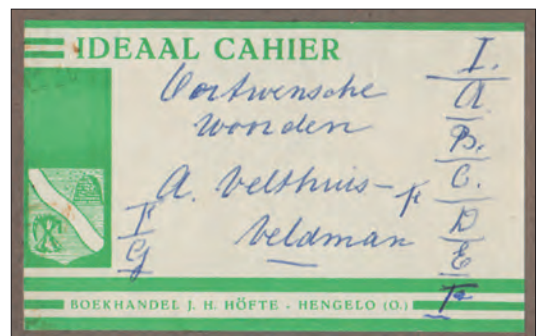 IDEAAL CAHIER
Oortwensche
woorden
A. Velthuis-
Veldman
I.
A.
B.
C.
D
E
F
I
G
BOEKHANDEL J. H. HÖFTE - HENGELO (O.)